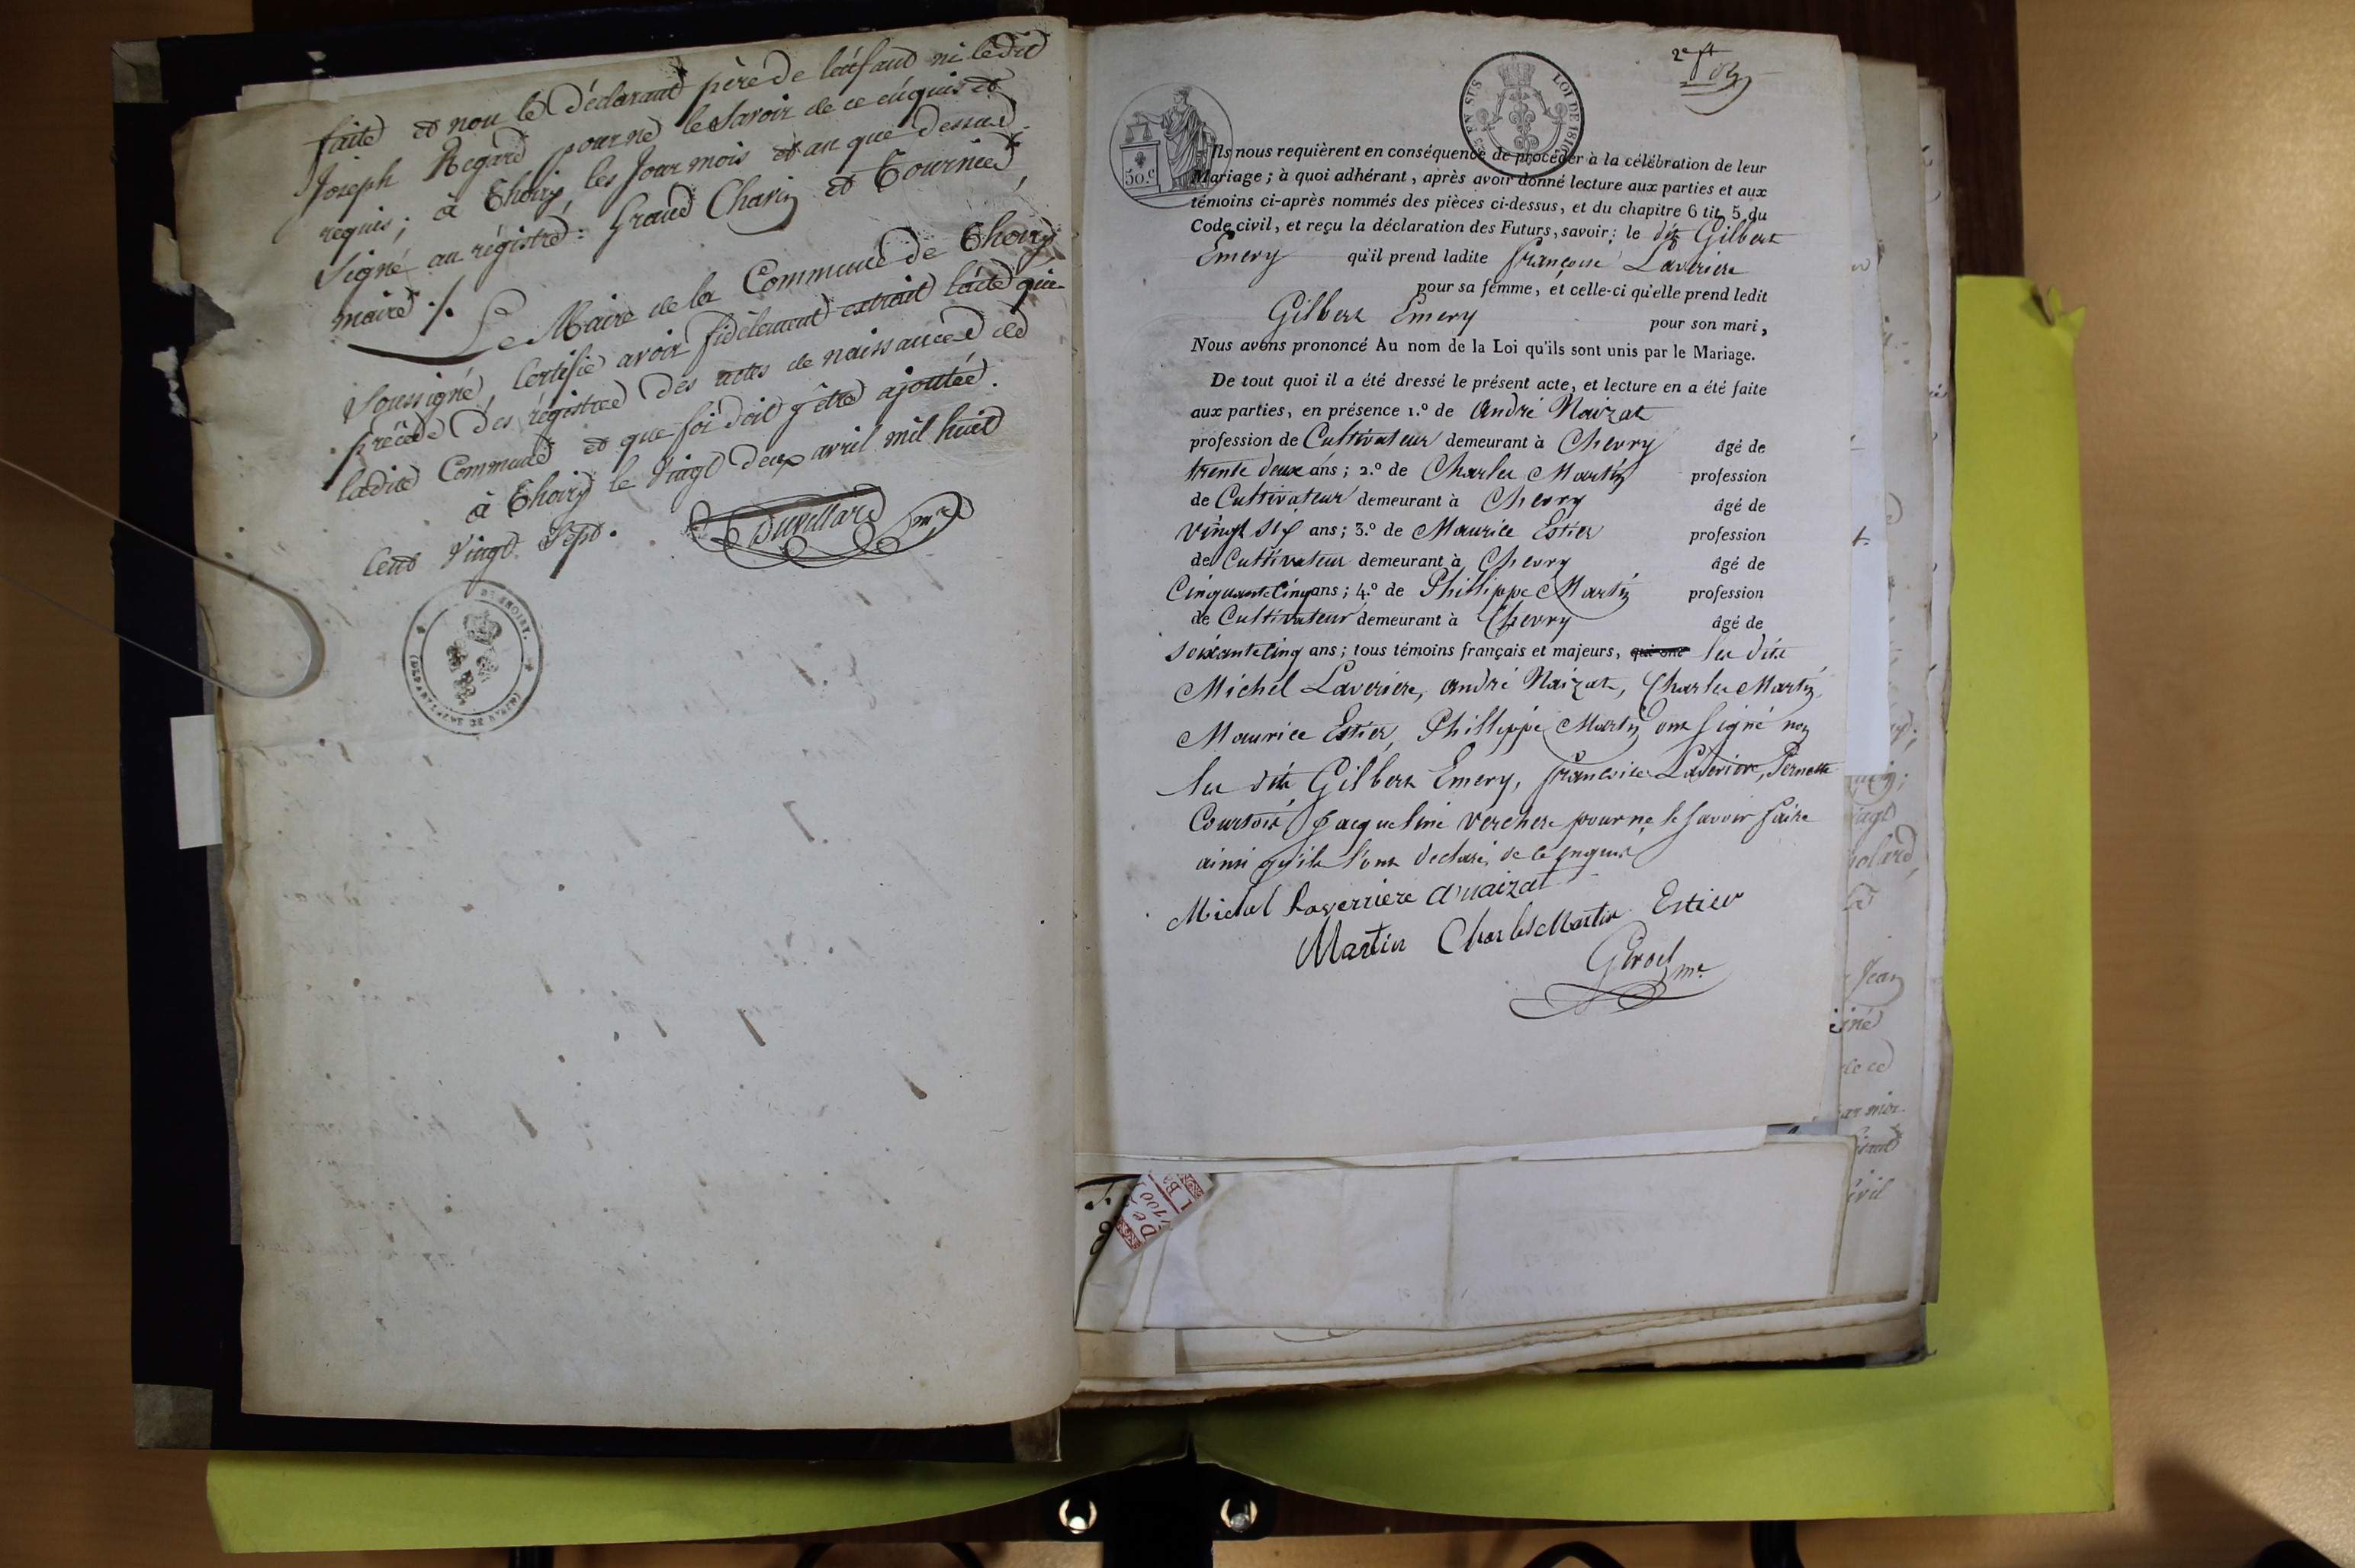 faite et non le déclarant père de l'enfant ni ledit
Joseph Regard pour ne le savoir de ce enquis et
requis; à Thoiry, les jour mois et an que dessus.
Signé au régistre: Grand Chavin et Tournier,
maire ./.
Le Maire de la Commune de Thoiry
soussigné, Certifie avoir fidèlement extrait l'acte qui
précède des régistres des actes de naissance de
ladite Commune et que foi doit y être ajoutée.
à Thoiry le vingt deux avril mil huit
cent vingt sept.
Duvillard mre
DE THOIRY.
2e ft
50.c
EN SUS
LOI DE 1816
Ils nous requièrent en conséquence de procéder à la célébration de leur
Mariage; à quoi adhérant, après avoir donné lecture aux parties et aux
témoins ci-après nommés des pièces ci-dessus, et du chapitre 6 tit. 5 du
Code civil, et reçu la déclaration des Futurs, savoir; le dit Gilbert
Emery qu'il prend ladite françoise Laveriere
pour sa femme, et celle-ci qu'elle prend ledit
Gilbert Emery pour son mari,
Nous avons prononcé Au nom de la Loi qu'ils sont unis par le Mariage.
De tout quoi il a été dressé le présent acte, et lecture en a été faite
aux parties, en présence 1.º de André Naizat
profession de Cultivateur demeurant à Chevry âgé de
trente deux ans; 2.º de Charles Martin profession
de Cultivateur demeurant à Chevry âgé de
vingt sept ans; 3.º de Maurice Estier profession
de Cultivateur demeurant à Chevry âgé de
Cinquante Cinq ans; 4.º de Phillippe Martin profession
de Cultivateur demeurant à Chevry âgé de
soixante Cinq ans; tous témoins français et majeurs, qui ont les dits
Michel Laveriere, André Naizat, Charles Martin,
Maurice Estier, Phillippe Martin ont signé non
les dits Gilbert Emery, françoise Laveriere, Pernette
Courtois, Jacqueline Verchere pour ne le savoir faire
ainsi qu'ils l'ont déclaré de ce enquis
Michel Laverriere a naizat
Martin Charles Martin Estier
Girod me